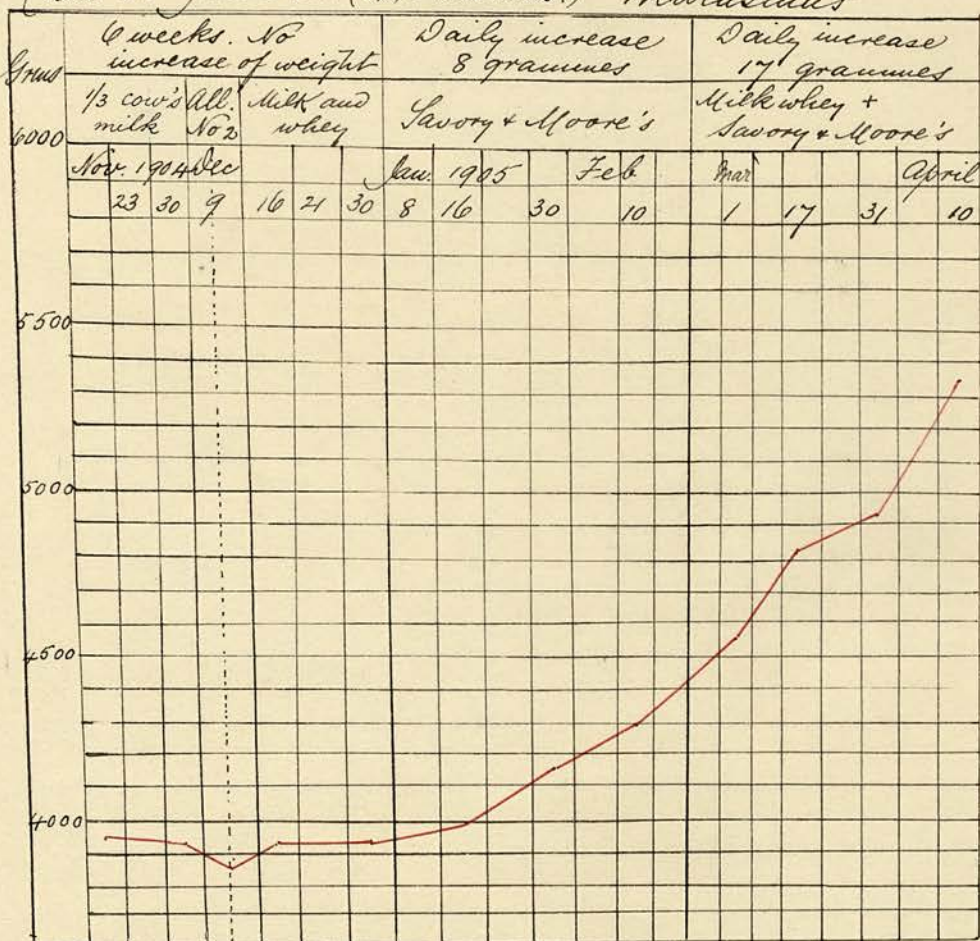 Marasmus
6 weeks. No increase of weight
Daily increase 8 grammes
Daily increase 17 grammes
Grms
1/3 cow's milk
All. No 2
Milk and whey
Savory & Moore's
Milk whey + Savory & Moore's
6000
Nov. 1904 Dec Jan. 1905 Feb Mar April
23 30 9 16 21 30 8 16 30 10 1 17 31 10
5500
5000
4500
4000